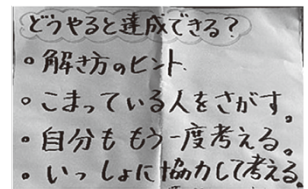 どうやると達成できる?
・解き方のヒント
・こまっている人をさがす。
・自分ももう一度考える。
・いっしょに協力して考える